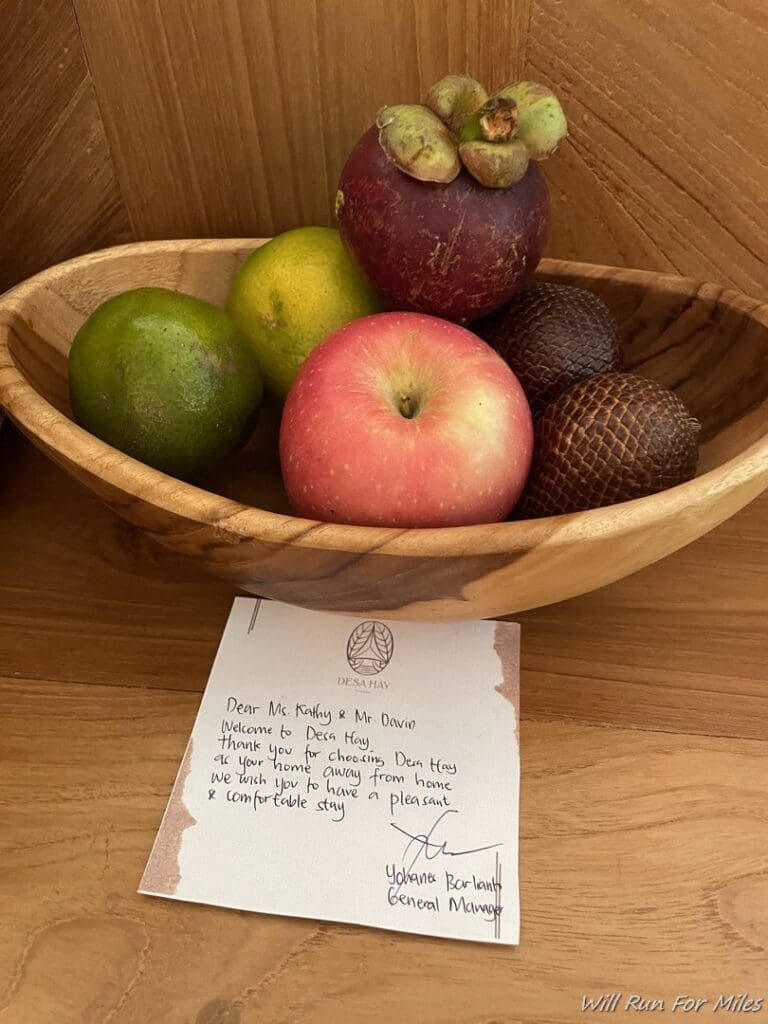 DESA HAY
Dear Ms. Kathy & Mr. Davin
Welcome to Desa Hay
thank you for choosing Desa Hay
as your home away from home
we wish you to have a pleasant
& comfortable stay
Yohanes Barliant
General Manager
Will Run For Miles